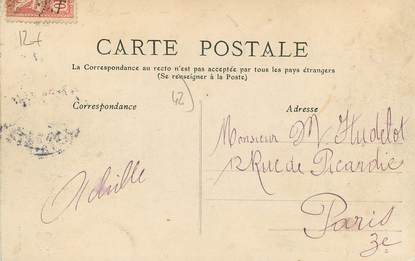 12+
CARTE POSTALE
La Correspondance au recto n'est pas acceptée par tous les pays étrangers
(Se renseigner à la Poste)
Correspondance
42
Adresse
Monsieur M. Hudelot
12 Rue de Picardie
Achille
Paris
3e